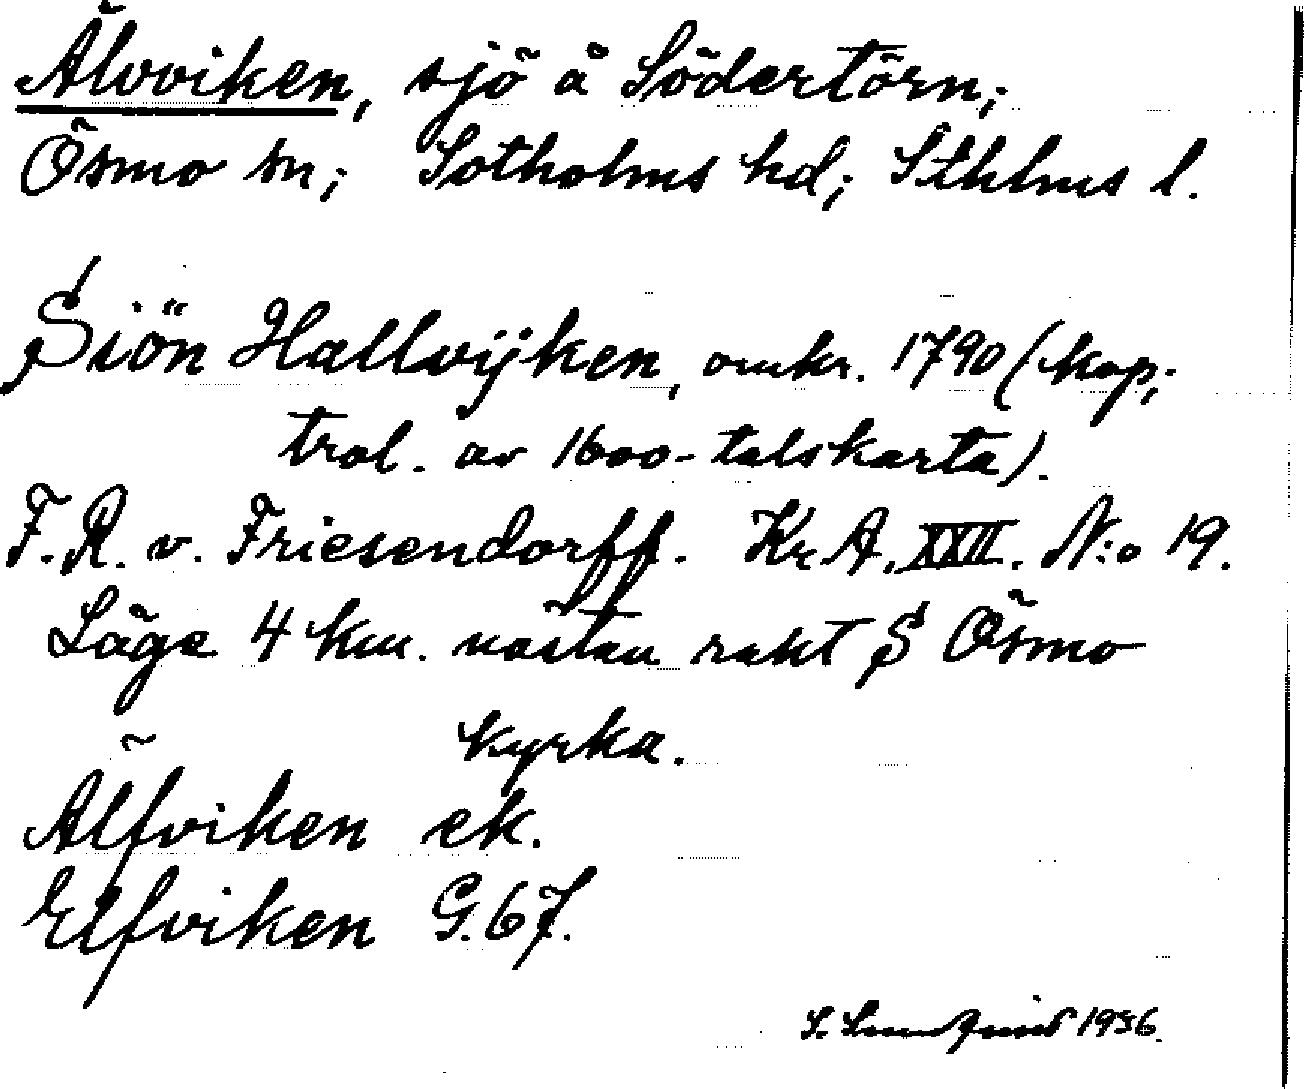 Älvviken, sjö å Södertörn;
Ösmo sn; Sotholms hd; Sthlms l.
Siön Hallvijken, omkr. 1790 (kop;
trol. av 1600-talskarta).
F.R. v. Friesendorff. Kr. A. XXII. N:o 19.
Läge 4 km. nästan rakt S Ösmo
kyrka.
Älfviken ek.
Elfviken G. 67.
S. Lundquist 1936.